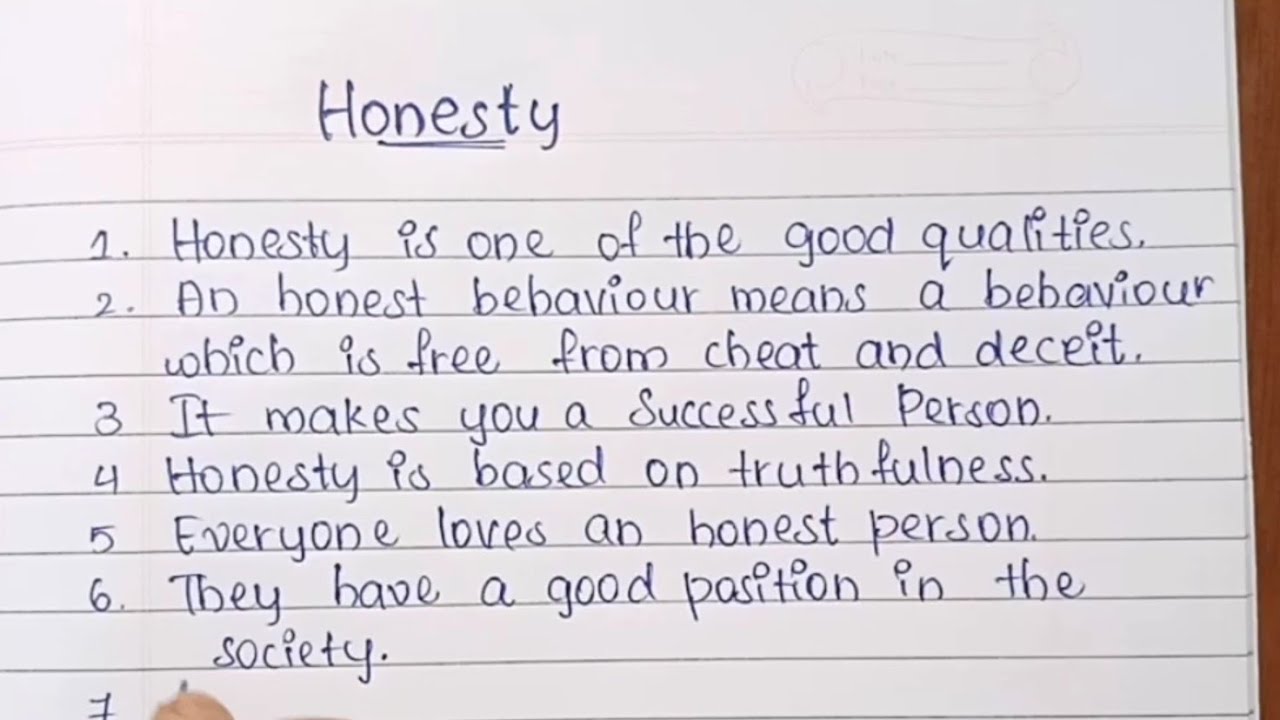 Honesty
1. Honesty is one of the good qualities.
2. An honest behaviour means a behaviour
which is free from cheat and deceit.
3 It makes you a Successful Person.
4 Honesty is based on truthfulness.
5 Everyone loves an honest person.
6. They have a good position in the
society.
7